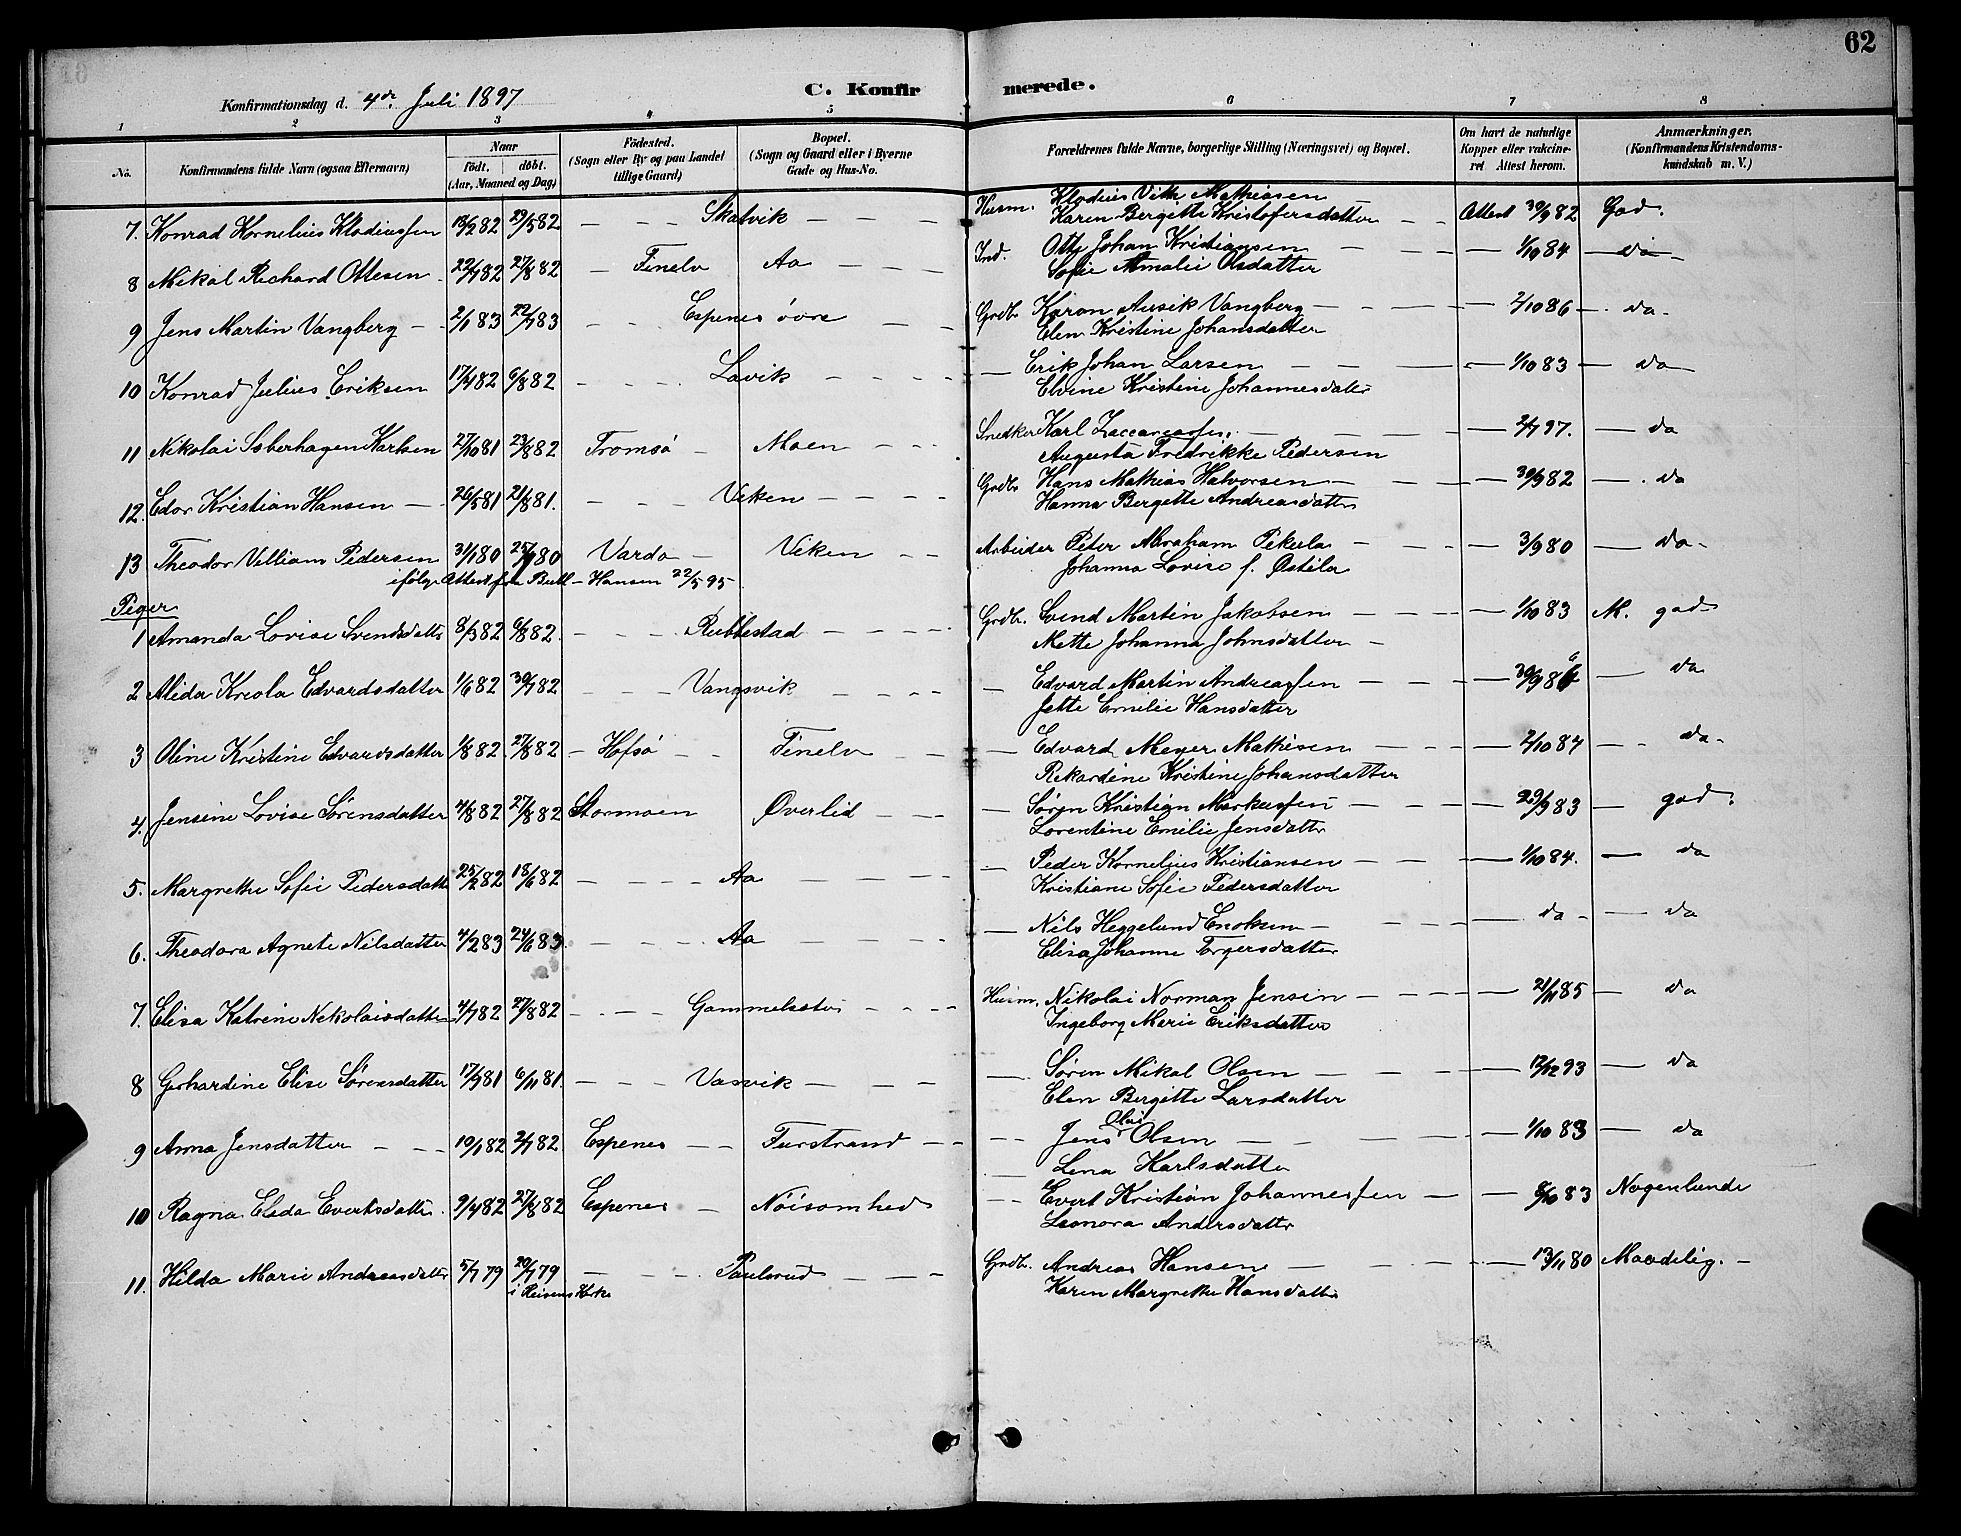 62
Konfirmationsdag d. 4de Juli 1897 C. Konfirmerede.
1 2 3 4 5 6 7 8
No. Konfirmandens fulde Navn (ogsaa Efternavn) Naar født, døbt. (Aar, Maaned og Dag) Fødested. (Sogn eller By og paa Landet tillige Gaard) Bopæl. (Sogn og Gaard eller i Byerne Gade og Hus-No. Forældrenes fulde Navne, borgerlige Stilling (Næringsvei) og Bopæl. Om havt de naturlige Kopper eller vakcineret Attest herom. Anmærkninger. (Konfirmandens Kristendomskundskab m. V.)
7. Konrad Kornelius Klodiussen 13/2 82 29/5 82 Skatvik Husm. Klodius Vith Mathiasen Attest 30/9 82 God.
Karen Bergitte Kristofersdatter
8 Mikal Richard Ottesen 22/7 82 27/8 82 Finelv Aa Ind. Otto Johan Kristiansen 1/10 84 do
Sofie Amalie Olsdatter
9 Jens Martin Vangberg 2/1 83 22/7 83 Espenes övre Grdb. Hiron Ausik Vangberg 2/10 86 do
Elen Kristine Johansdatter
10 Konrad Julius Eriksen 17/4 82 6/8 82 Lavik Erik Johan Larsen 1/10 83 do
Elvine Kristine Johannesdatter
11 Nikolai Soberhagen Karlsen 27/10 81 23/8 82 Tromsö Moen Snedker Karl Zaccariassen 2/7 97. do
Augusta Fredrikke Pedersen
12. Edor Kristian Hansen 26/5 81 21/8 81. Viken Grdb. Hans Mathias Halvorsen 30/9 82 do
Hanna Bergitte Andreasdatter
13 Theodor Villiam Pedersen 31/1 80 25/7 80 Vardo Viken Arbeider Peter Abraham Pekerla 3/9 80 do
ifølge Attest fra Bull-Hansen 22/5 95 Johanna Lovise f. Østila
Piger
1 Amanda Lovise Svendsdatter 8/3 82 6/8 82. Rubbestad Grdb. Svend Martin Jakobsen 1/10 83 M. god
Mette Johanna Johnsdatter
2 Alida Kreola Edvardsdatter 1/6 82 30/7 82 Vangsvik Edvard Martin Andreassen 30/9 86 do
Jette Emilie Hansdatter
3 Oline Kristine Edvardsdatter 1/8 82 27/8 82 Hofsö Finelv Edvard Meyer Mathisen 2/10 87 do
Rikardine Kristine Johansdatter
4. Jensine Lovise Sørensdatter 4/8 82 27/8 82 Stormoen Øverlid Søren Kristian Markussen 29/9 83 god.
Lorentine Emilie Jensdatter
5. Margrethe Sofie Pedersdatter 25/2 82 18/6 82 Aa Peder Kornelius Kristiansen 1/10 84. do
Kristiane Sofie Pedersdatter
6. Theodora Agnete Nilsdatter 4/2 83 24/6 83 Aa Nils Heggelund Enoksen do do
Elisa Johanne Torgersdatter
7. Elisa Katrine Nekolaisdatter 4/7 82 27/8 82 Gammelseter Husm. Nikolai Norman Jensen 21/11 85 do
Ingeborg Marie Eriksdatter
8 Gerhardine Elise Sørensdatter 17/9 81 6/11 81. Vasvik Søren Mikal Olsen 12/12 93 do
Elen Bergitte Larsdatter
9 Anna Jensdatter 19/1 82 2/7 82. Espenes Furstrand Jens Olai Olsen 1/10 83 do
Lena Karlsdatter
10 Ragna Elida Evertsdatter 9/4 82 27/8 82 Espenes Nöisomhed Evert Kristian Johannessen 8/10 83 Nogenlunde
Leonora Andersdatter
11. Hilda Marie Andreasdatter 5/7 79 20/7 79 Paulsrud Grdb. Andreas Hansen 13/11 80 Maadelig.
i Reisens Kirke Karen Margrethe Hansdatter